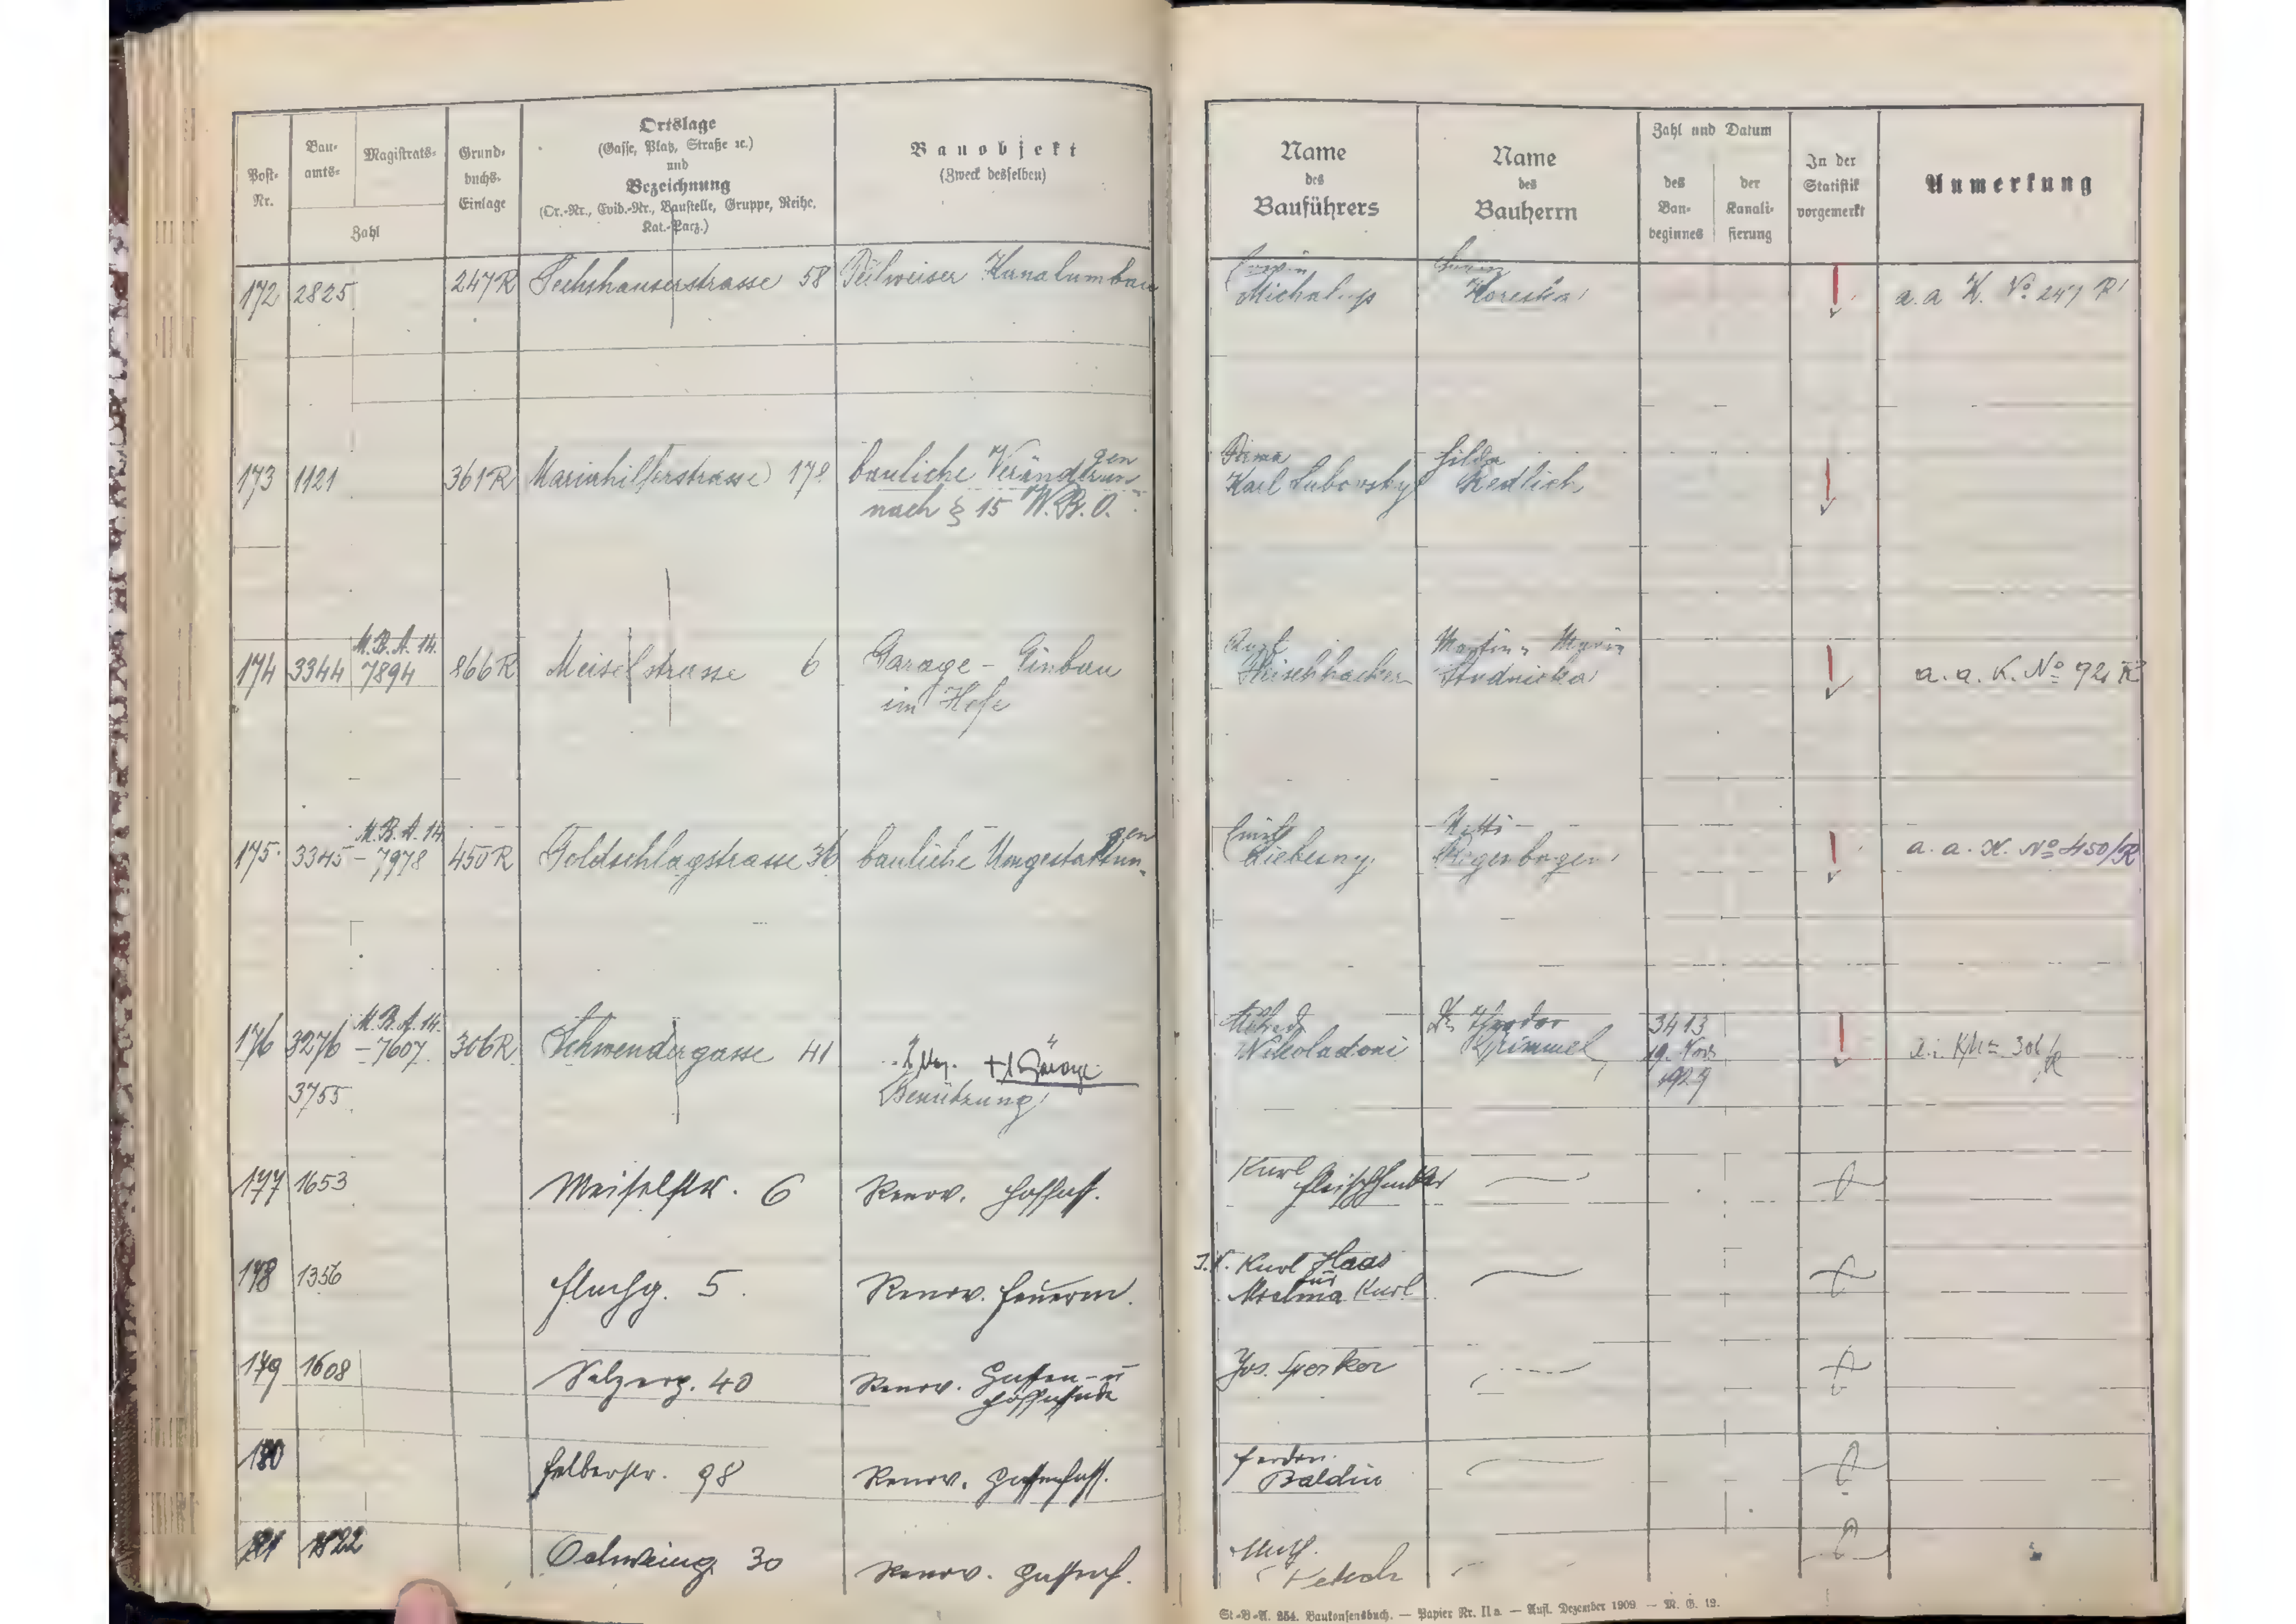 Post-Nr.
Bau-amts-
Magistrats-
Zahl
Grund-buchs-Einlage
Ortslage
(Gasse, Platz, Straße ꝛc.)
und
Bezeichnung
(Or.-Nr., Evid.-Nr., Baustelle, Gruppe, Reihe,
Kat.-Parz.)
Bauobjekt
(Zweck desselben)
Name
des
Bauführers
Name
des
Bauherrn
Zahl und Datum
des
Bau-
beginnes
der
Kanali-
sierung
In der
Statistik
vorgemerkt
Anmerkung
172 2825 247R Sechshauserstrasse 58 Teilweiser Kanalumbau
Michalup
a.a K. No 247 R
173 1121 361R Mariahilferstrasse 178 bauliche Veränderungen
nach § 15 W.B.O.
Firma
Karl Lubowsky
Hilda
Redlich
M.B.A. 14.
174 3344 7894 866R Meiselstrasse 6 Garage - Einbau
im Hofe
Kurl
Fleischhacker
Martin u Maria
Studnicka
a.a. K. No
M.B.A. 14
175 3345 - 7978 450R Goldschlagstrasse 36 bauliche Umgestaltungen
Emil
Netti
Regenbogen
a.a. K. No 450/R
M.B.A. 14.
176 3276 - 7607 306R Schwendergasse 41
3755
Garage
Benützung
Alfred
Nikoladoni
Dr. Theodor
Grimmel
3413
19. Nov
1929
177 1653 Meiselstr. 6 Renov. Hoffass.
Kurl Fleischhacker
178 1356 Flachg. 5. Renov. Feuerm.
I.V. Kurl Haas
für
Kurl
179 1608 Selzerg. 40 Renov. Gassen- u
Hoffassade
Jos. Sperker
180 Felberstr. 98 Renov. Gassenfass.
Ferdin.
Baldia
181 1822 Oelweing. 30 Renov. Gassenf.
St.-B.-A. 254. Baukonsensbuch. — Papier Nr. II a. — Aufl. Dezember 1909 — M. G. 12.